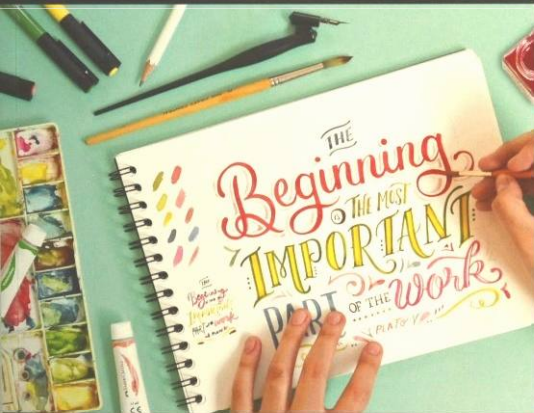 THE
Beginning
is THE MOST
IMPORTANT
PART OF THE Work
PLATO
THE
Beginning
IMPORTANT
PART OF THE work